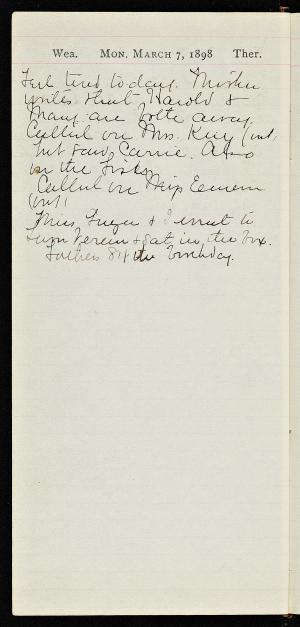 Wea. MON. MARCH 7, 1898 Ther.
Feel tired today. Mother
writes that Harold &
Mary are both away
Called on Mrs. King (out,
but saw Carrie. Also
on the
Called on Miss
(out)
Miss & I went to
Turn Verein & sat in the box.
Father's 81st birthday.